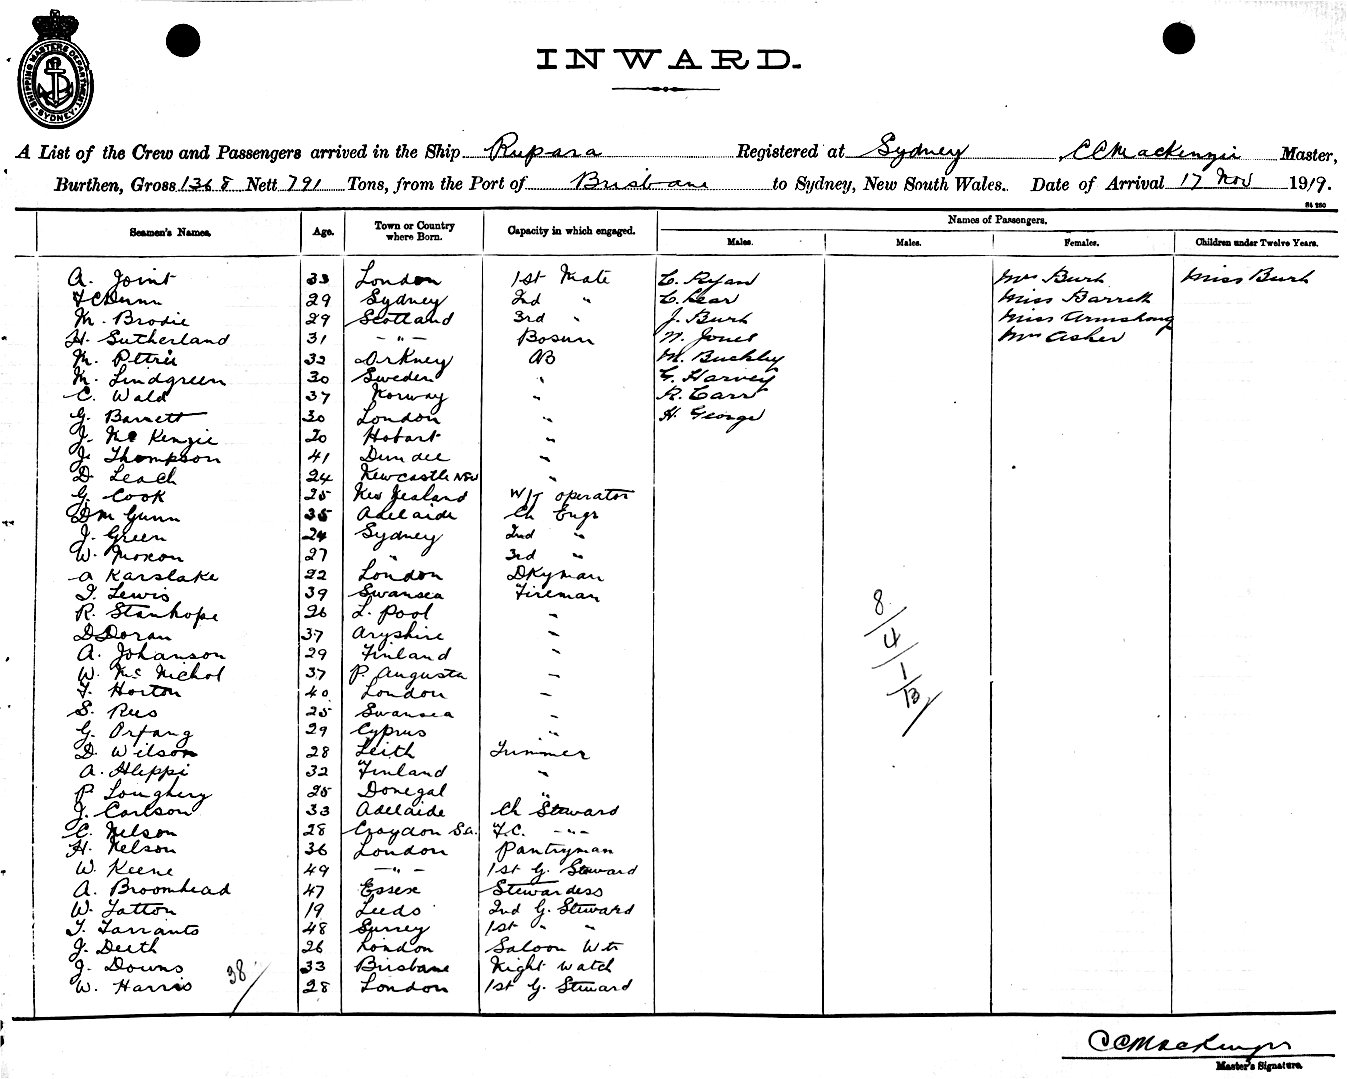 SHIPPING MASTERS DEPARTMENT SYDNEY
INWARD.
A List of the Crew and Passengers arrived in the Ship Rupara Registered at Sydney CCMackenzie Master,
Burthen, Gross 1368 Nett 791 Tons, from the Port of Brisbane to Sydney, New South Wales. Date of Arrival 17 Nov 1919.
Seamen's Names. Age. Town or Country where Born. Capacity in which engaged. Names of Passengers.
Males. Males. Females. Children under Twelve Years.
A. Joint 33 London 1st Mate C. Ryan Mrs Burk Miss Burk
29 Sydney 2nd " C. Lear Miss Barrett
M. Brodie 29 Scotland 3rd " J. Burk Miss Armstrong
H. Sutherland 31 -"- Bosun W. Jones Mrs Asher
M. Petrie 32 Orkney AB M. Buckley
M. Lindgreen 30 Sweden " G. Harvey
C. Wald 37 Norway " R. Carr
G. Barnett 30 London " H. George
J. McKenzie 20 Hobart "
J. Thompson 41 Dundee "
D. Leach 24 Newcastle NSW "
G. Cook 25 New Zealand W/T operator
D M Gunn 35 Adelaide Ch Engr
J. Green 24 Sydney 2nd "
W. Moxon 27 " 3rd "
A Karslake 22 London DKyman
T. Lewis 39 Swansea Fireman
R. Stanhope 26 L. Pool "
D Doran 37 Aryshire "
A. Johanson 29 Finland "
W. McNichol 37 P. Augusta "
F. Horton 40 London "
S. Rees 25 Swansea "
G. Orfang 29 Cyprus "
D. Wilson 28 Leith Trimmer
A. Aleppi 32 Finland "
P Loughery 25 Donegal "
J. Carlson 33 Adelaide Ch Steward
C. Nelson 28 Croydon Sa. F.C. -"-
H. Nelson 36 London Pantryman
W. Keene 49 -"- 1st G. Steward
A. Broomhead 47 Essex Stewardess
W. Tatton 19 Leeds 2nd G. Steward
T. Tarrants 48 Surrey 1st " "
J. Deeth 26 London Saloon Wtr
J. Downs 33 Brisbane Night Watch
W. Harris 28 London 1st G. Steward
38/
8
4
1
13
CCMackenzie
Master's Signature.